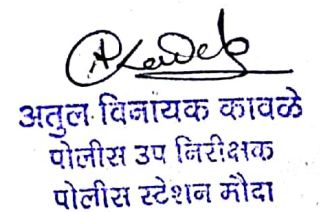 अतुल विनायक कावळे
पोलीस उप निरीक्षक
पोलीस स्टेशन मौदा